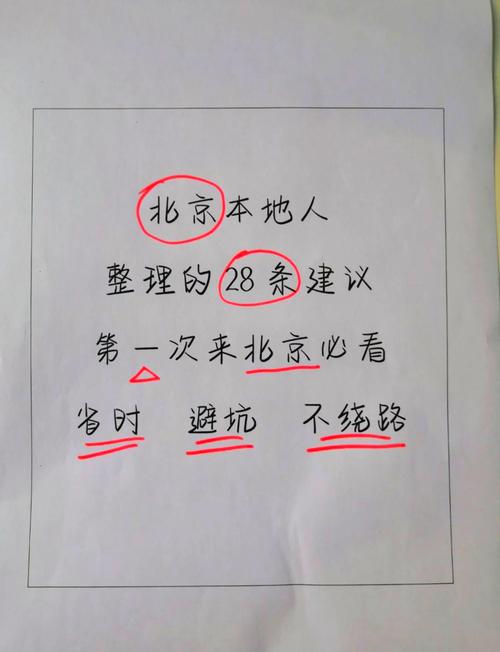 北京本地人
整理的28条建议
第一次来北京必看
省时 避坑 不绕路